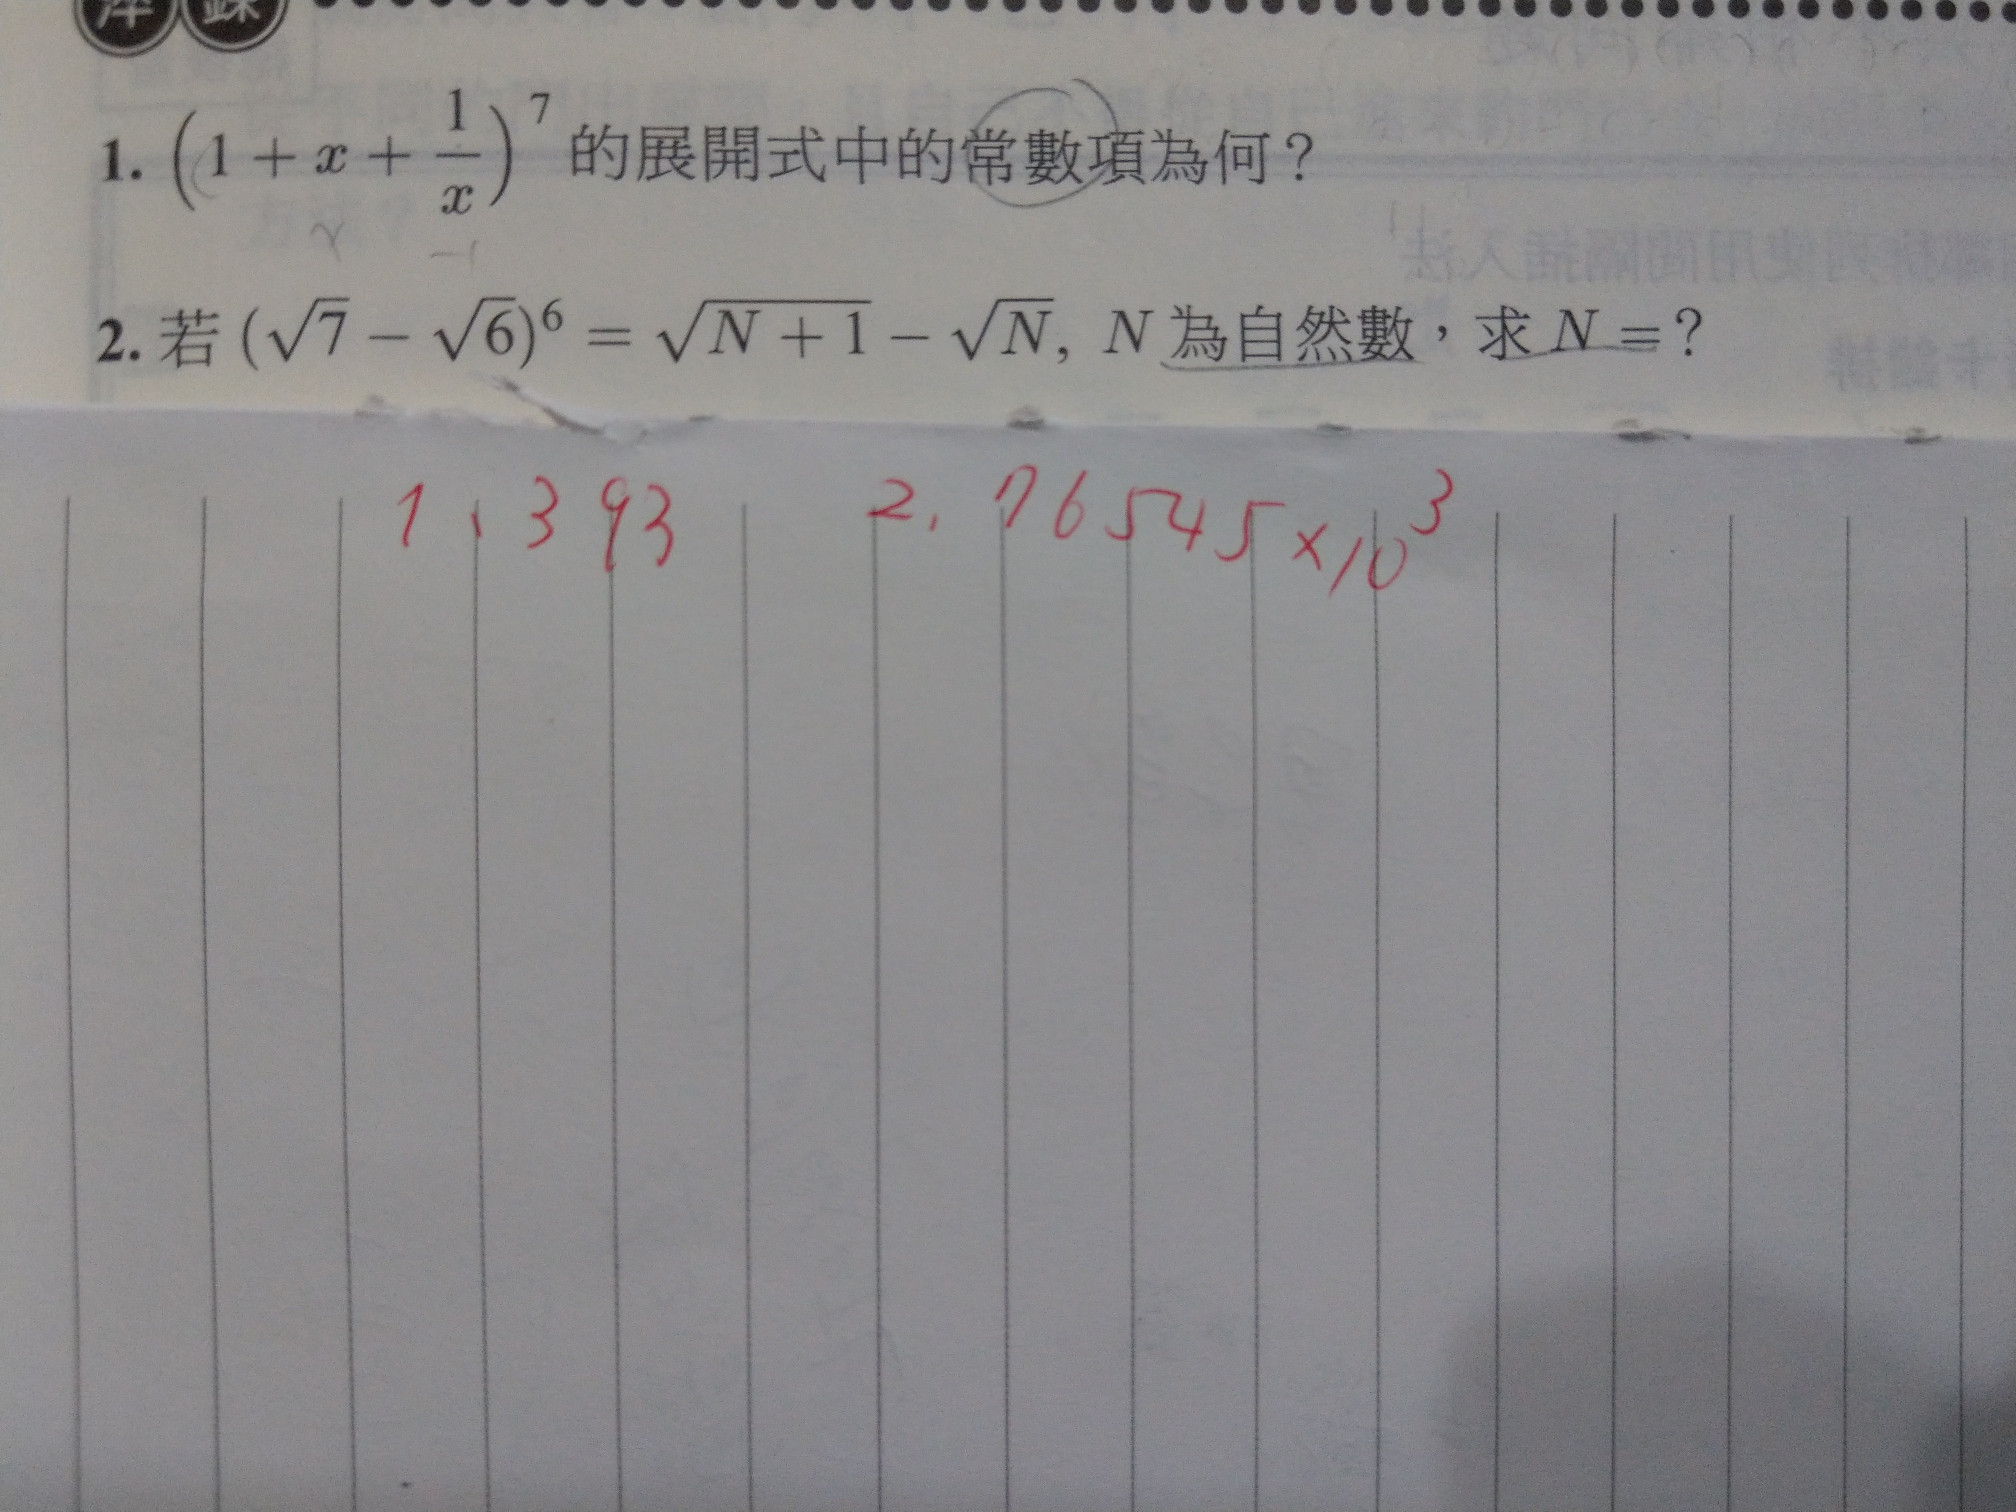 1. (1 + x + 1/x)^7 的展開式中的常數項為何？
x -1
2. 若 (√7 − √6)^6 = √(N + 1) − √N, N 為自然數，求 N = ?
1、393 2. 76545×10^3